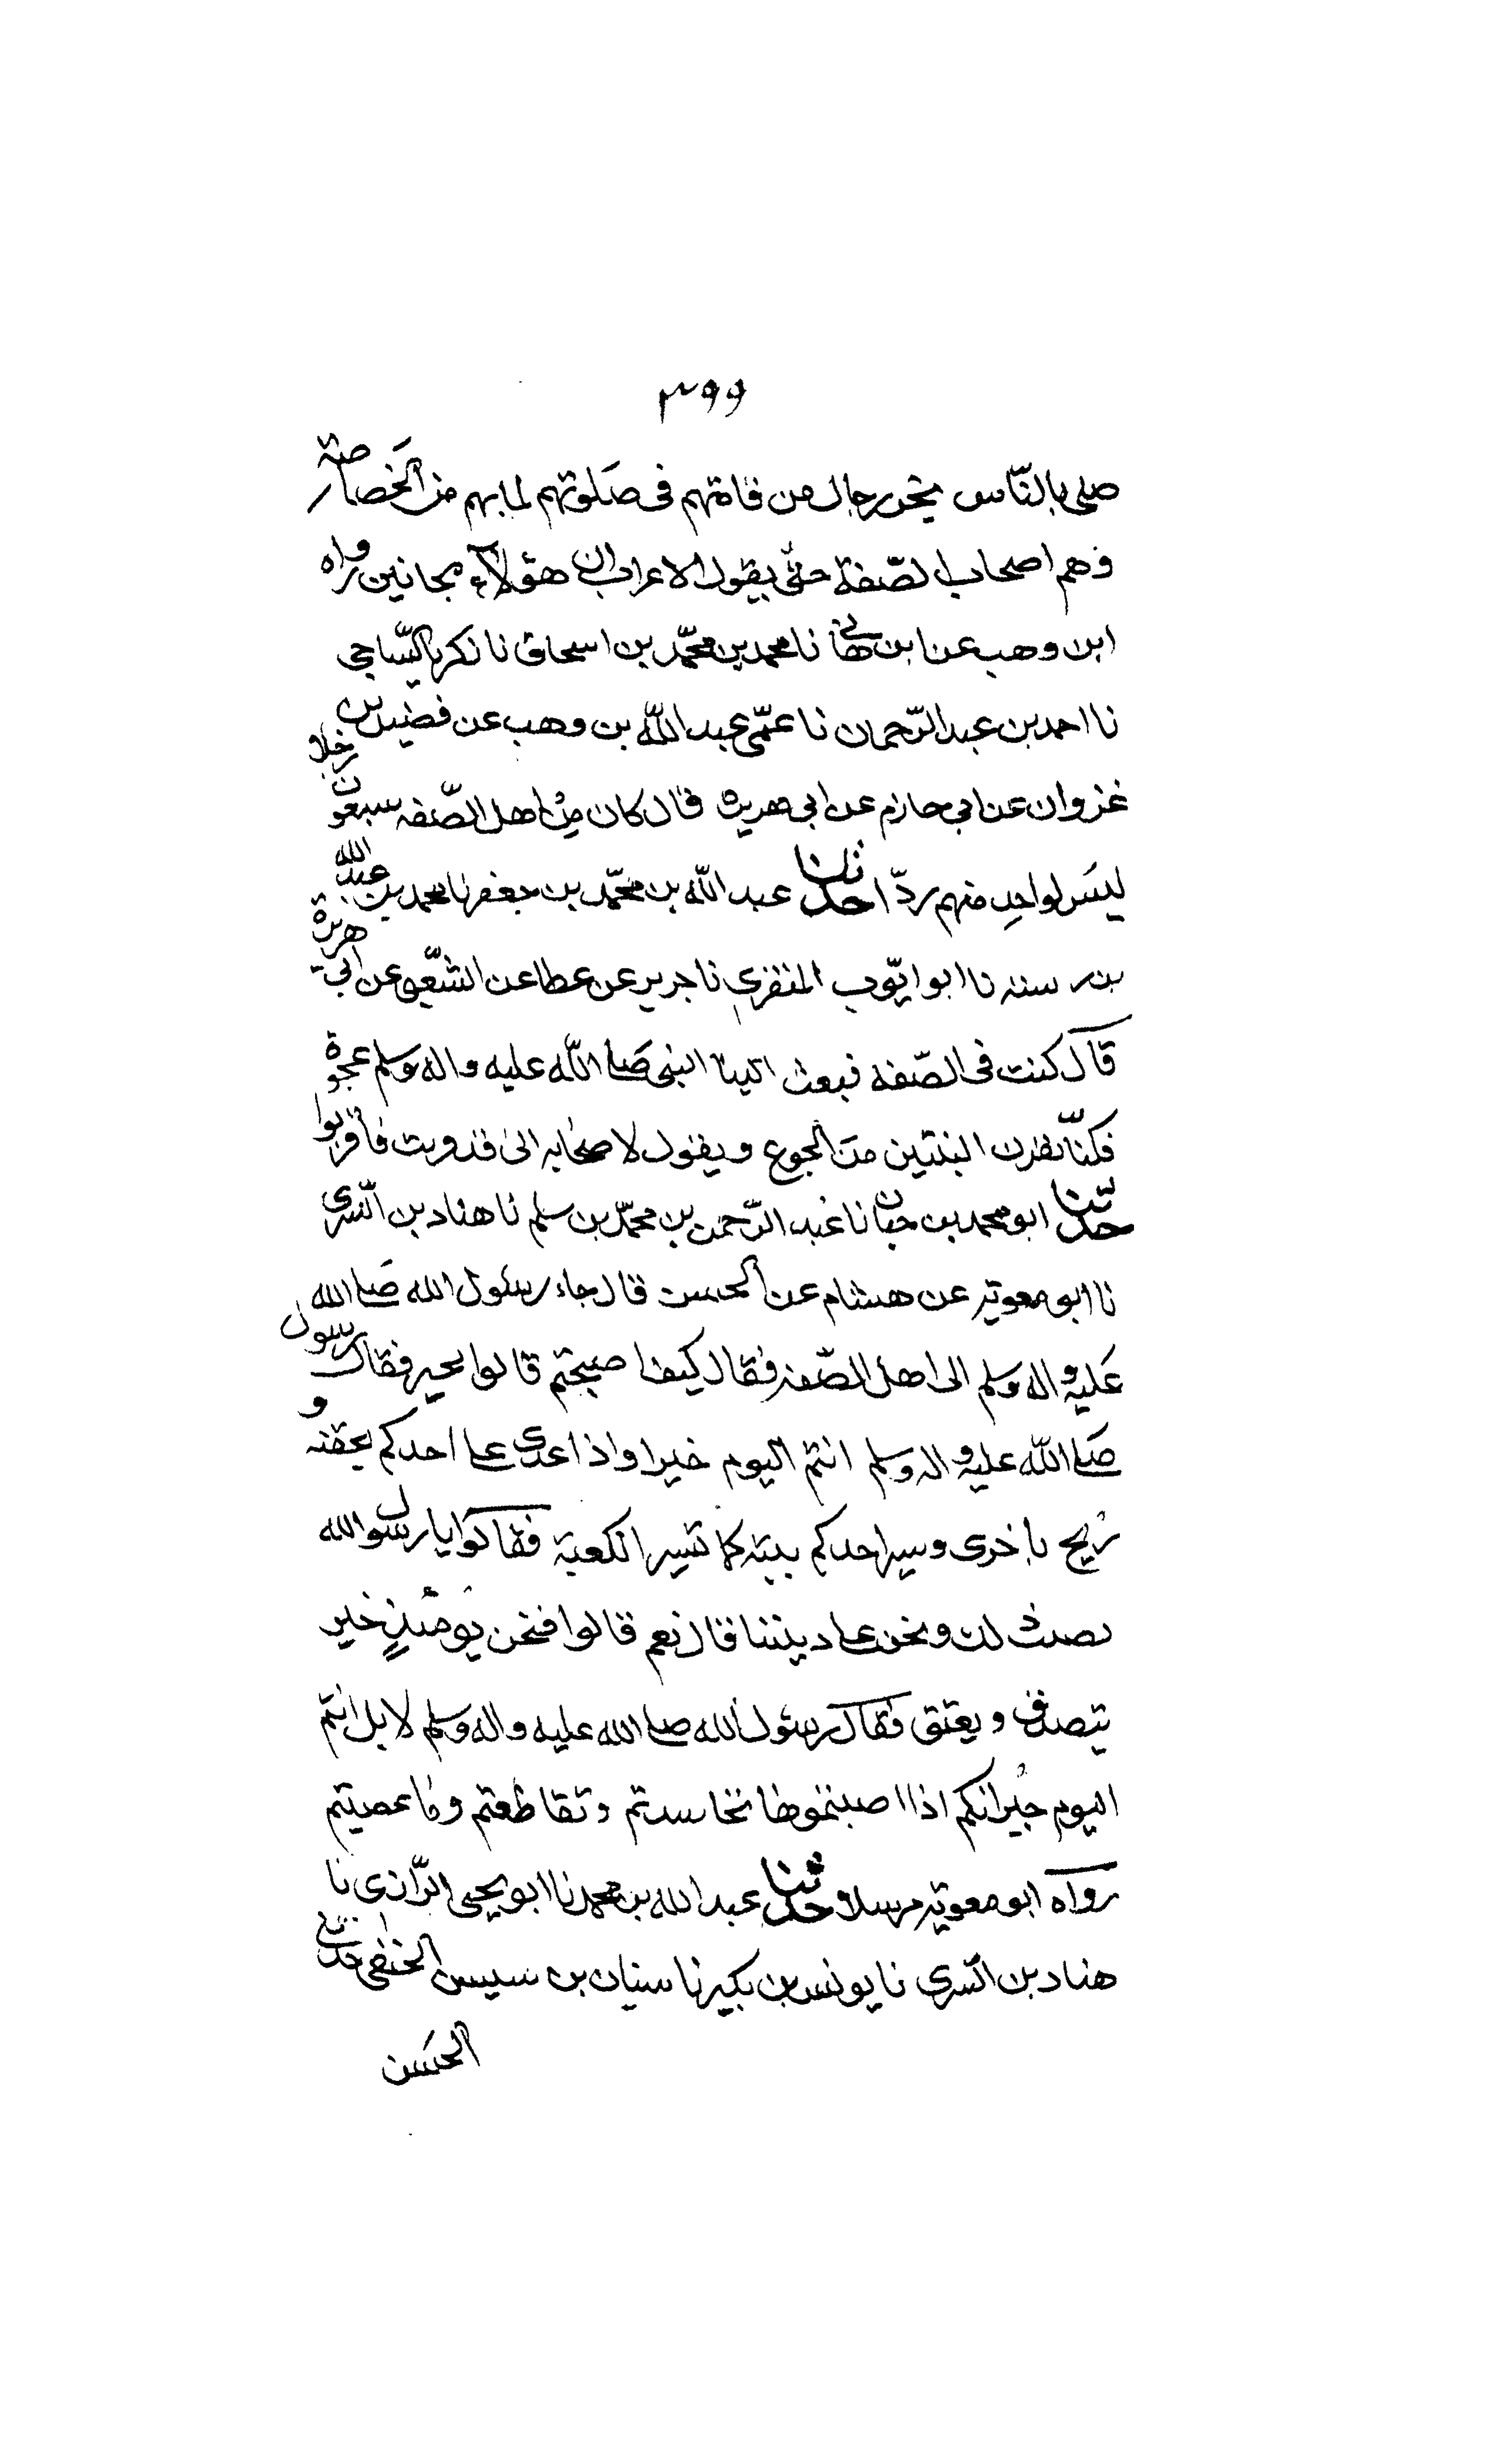 ٣٩٩
صلى بالنّاس يخر رجال من قامتهم فى صَلوتهم لما بهم من الخَصاصة
وهم اصحاب الصّفة حتّى يقول الاعراب ان هؤلآء مجانين رواه
ابن وهب عن ابن هانى نا محمد بن محمّد بن اسحاق نا زكريا السّاجى
نا احمد بن عبد الرّحمان نا عمّى عبد اللّه بن وهب عن فضيل بن
غزوان عن ابى حازم عن ابى هريره قال كان مِن اهل الصّفه سبعون رجلا
ليسَ لواحدٍ منهم ردّا حدثنا عبد اللّه بن محمّد بن جعفر نا محمد بن عبد الله
بن رسته نا ابو ايّوب المنقرى نا جرير عن عطا عن الشعّبى عن ابى هريرة
قال كنت فى الصّفه فبعث الينا النبى صَلى اللّه عليه واله وسلم عجوة
فكنّا نقرن الثنتين منَ الجوع ويقول لاصحابه انى قد قرنت فاقرنوا
حدّثنا ابو محمد بن حيان نا عبد الرّحمن بن محمّد بن سلم نا هناد بن السّرى
نا ابو معوية عن هشام عن الحسن قال جاء رسُول الله صَلى الله
عَليه واله وسلم الى اهل الصّفه فقال كيف اصبحتم قالوا بخير فقال رسول
صَلى اللّه عليه واله وسلم انتم اليوم خير واذا غدى على احدكم بجفنه و
ريح باخرى وستر احدكم بيته كما تستر الكعبة فقالوا يا رسول الله
نصيب ذلك ونحن على ديننا قال نعم قالوا فنحن يَومئذٍ خير
نتصدق ونعتق فقال رسُول الله صلى الله عليه واله وسلم لا بل انتم
اليوم خيرانكم اذا اصبتموها تحاسدتم وتقاطعتم وتباغضتم
رواه ابو معوية مرسلا حدثنا عبد الله بن محمد نا ابو يحيى الرّازى نا
هناد بن السّرى نا يونس بن بكير نا سنان بن سيسن الحنفى حدثنى
الحسَن